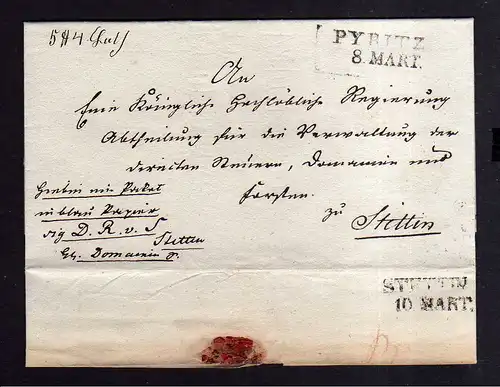 PYRITZ
8. MART.
An
Eine Königliche Hochlöbliche Regierung
Abtheilung für die Verwaltung der
directen Steuern, Domainen und
Forsten.
zu
Stettin
Hierbei ein Paket
in blau Papier
sig D. R. v. S
Stettin
Domainen
STETTIN
10 MART.